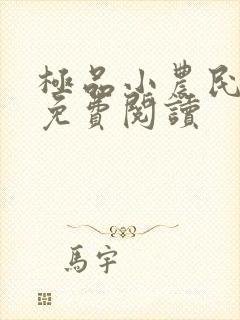 極品小農民
免費閱讀
馬宇